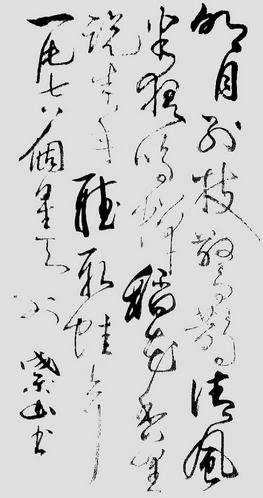 明月别枝驚鹊清風
半夜鸣蝉稻花香里
说丰年聽取蛙声
一片七八個星天外
书